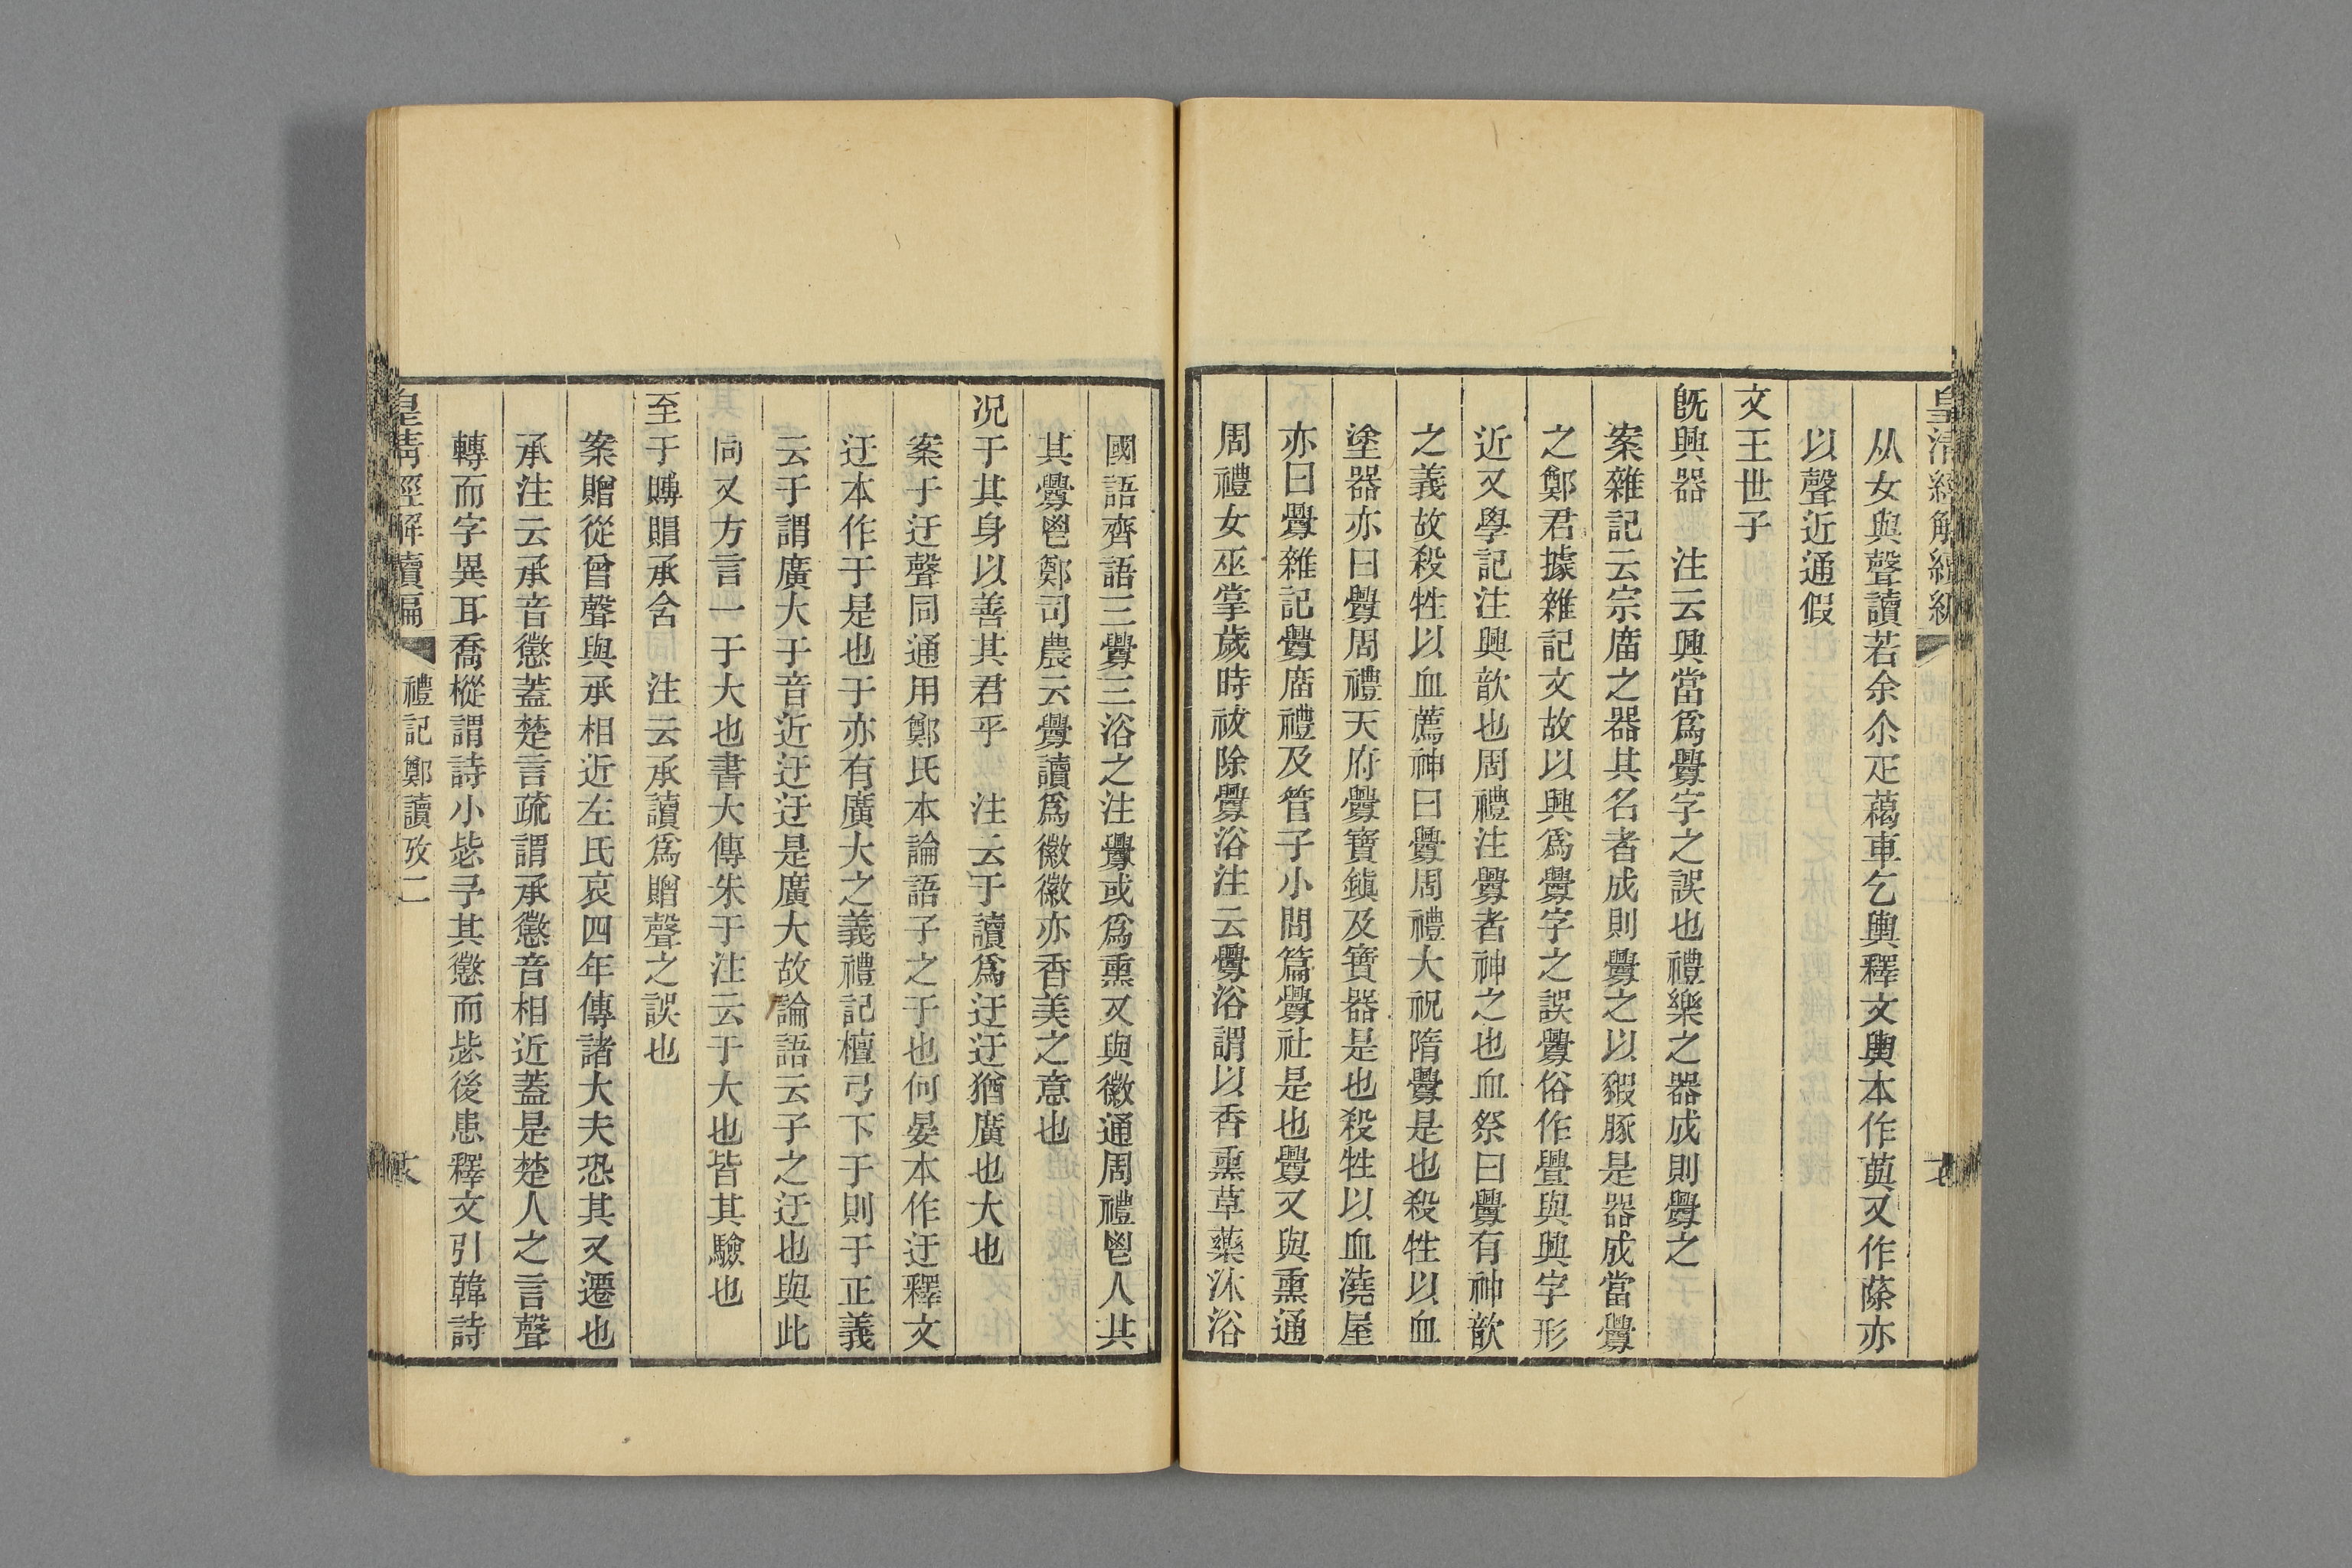 皇清經解續編
从女與聲讀若余尒疋藒車乞輿釋文輿本作䔡又作蒢亦
以聲近通假
文王世子
旣興器　注云興當爲釁字之誤也禮樂之器成則釁之
案雜記云宗庿之器其名者成則釁之以豭豚是器成當釁
之鄭君據雜記文故以興爲釁字之誤釁俗作舋與興字形
近又學記注興歆也周禮注釁者神之也血祭曰釁有神歆
之義故殺牲以血薦神曰釁周禮大祝隋釁是也殺牲以血
塗器亦曰釁周禮天府釁寶鎮及寶器是也殺牲以血澆屋
亦曰釁雜記釁庿禮及管子小問篇釁社是也釁又與熏通
周禮女巫掌歲時祓除釁浴注云釁浴謂以香熏草藥沐浴
國語齊語三釁三浴之注釁或爲熏又與徽通周禮鬯人共
其釁鬯鄭司農云釁讀爲徽徽亦香美之意也
况于其身以善其君乎　注云于讀爲迂迂猶廣也大也
案于迂聲同通用鄭氏本論語子之于也何晏本作迂釋文
迂本作于是也于亦有廣大之義禮記檀弓下于則于正義
云于謂廣大于音近迂迂是廣大故論語云子之迂也與此
同又方言一于大也書大傳朱于注云于大也皆其驗也
至于賵賵承含　注云承讀爲贈聲之誤也
案贈從曾聲與承相近左氏哀四年傳諸大夫恐其又遷也
承注云承音懲蓋楚言疏謂承懲音相近蓋是楚人之言聲
轉而字異耳喬樅謂詩小毖予其懲而毖後患釋文引韓詩
皇清經解續編　禮記鄭讀攷二